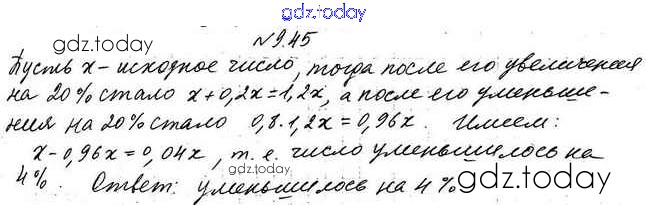 gdz.today
№9.45
gdz.today gdz.today
Пусть x - исходное число, тогда после его увеличения
на 20% стало x+0,2x=1,2x, а после его уменьше-
ния на 20% стало 0,8·1,2x=0,96x. Имеем:
x-0,96x=0,04x, т.е. число уменьшилось на
4%. Ответ: уменьшилось на 4%
gdz.today gdz.today